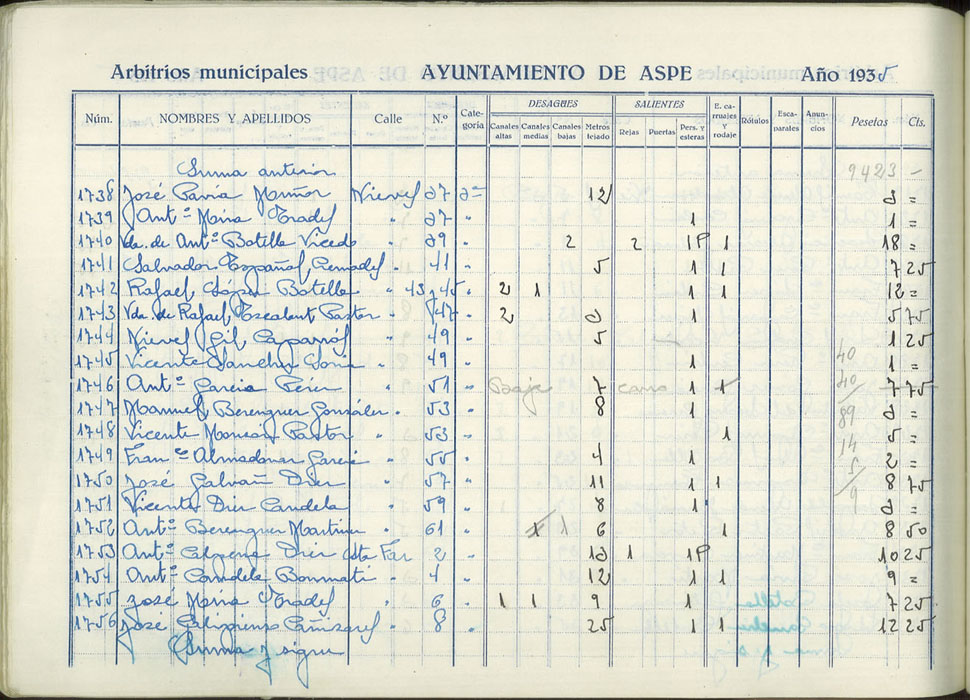 Arbitrios municipales AYUNTAMIENTO DE ASPE Año 1935
Núm. NOMBRES Y APELLIDOS Calle N.º Cate-goría DESAGUES Canales altas Canales medias Canales bajas Metros tejado SALIENTES Rejas Puertas Pers. y esteras E. ca-rruajes y rodaje Rótulos Esca-parates Anun-cios Pesetas Cts.
Suma anterior 9423 –
1738 José Pavía Muñoz Nieves 27 2ª 12 2 =
1739 Antº Mira Prades " 27 " 1 1 =
1740 Vda. de Antº Botella Vicedo " 29 " 2 2 1P 1 18 =
1741 Salvador Español Penades " 41 " 5 1 1 7 25
1742 Rafael López Botella " 43 y 45 " 2 1 1 1 12 =
1743 Vda. de Rafael Pastor " 47 " 2 2 1 5 75
1744 Nieves Gil Caparrós " 49 " 5 1 25
1745 Vicente Sanchez Soria " 49 " 1 1 =
1746 Antº Garcia Perez " 51 " Baja 7 carro 1 1 7 75
1747 Manuel Berenguer González " 53 " 8 1 2 =
1748 Vicente Pastor " 53 " 1 5 =
1749 Franº Almodovar Garcia " 55 " 4 1 2 =
1750 José Galvañ Diez " 57 " 11 1 1 8 75
1751 Vicente Diez Candela " 59 " 8 1 2 =
1752 Antº Berenguer Martinez " 61 " 1 1 6 1 8 50
1753 Antº Diez Sta Faz 2 " 12 1 1P 10 25
1754 Antº Candela Bonmati " 4 " 12 1 1 9 =
1755 José Mira Prades " 6 " 1 1 9 1 7 25
1756 José Cañizares " 8 " 25 1 1 12 25
Suma y sigue
40
40
89
14
5
9